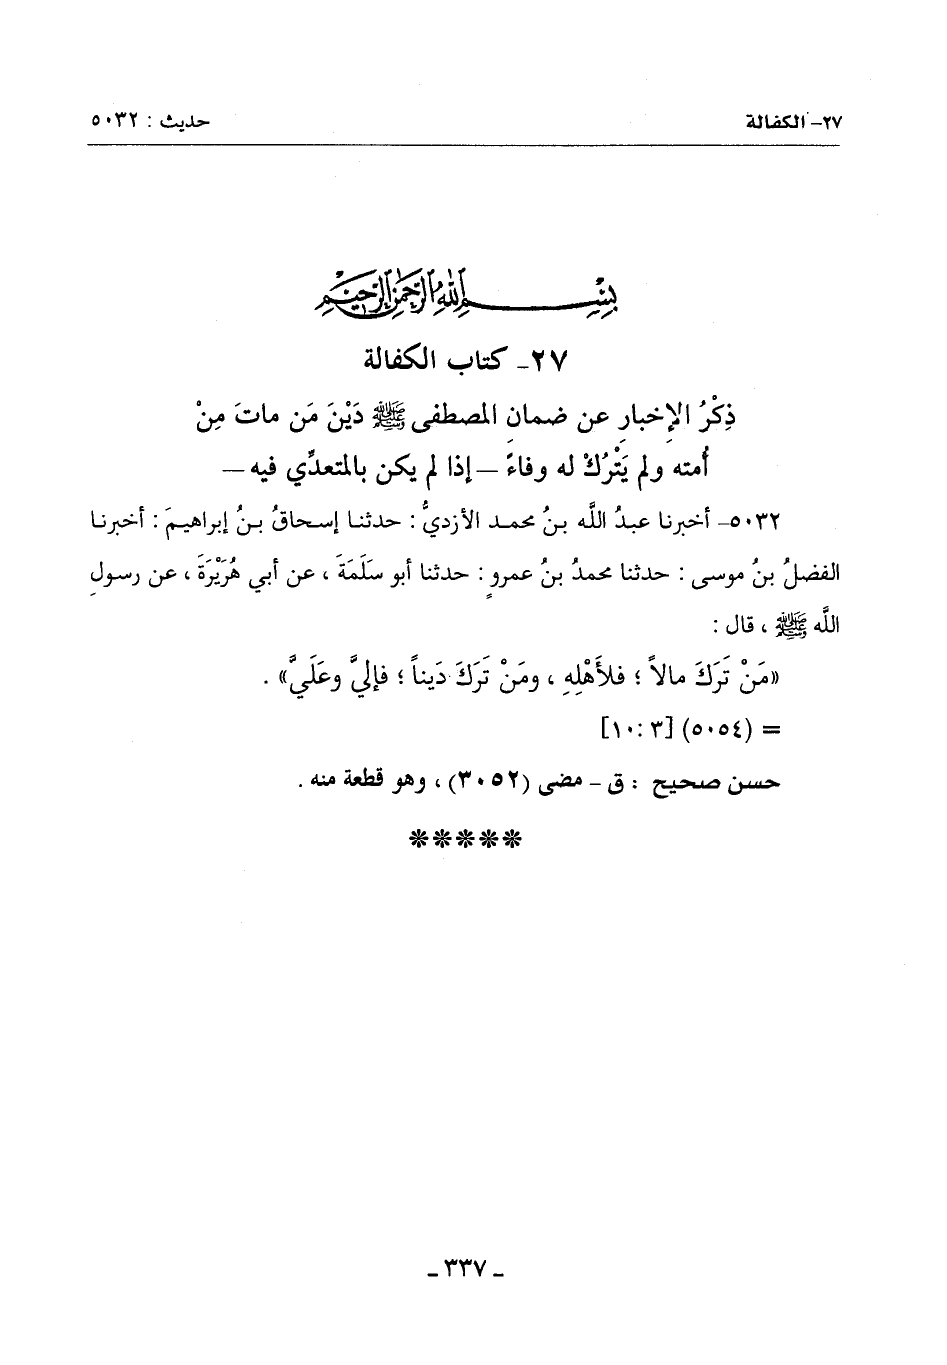 ٢٧- الكفالة حديث : ٥٠٣٢
بسم الله الرحمن الرحيم
٢٧- كتاب الكفالة
ذِكْرُ الإخبارِ عن ضمان المصطفى ﷺ دَيْنَ مَن ماتَ مِنْ
أُمتِه ولم يَتْرُكْ له وفاءً – إذا لم يكن بالمتعدِّي فيه –
٥٠٣٢- أخبرنا عبدُ اللَّه بنُ محمد الأزديُّ : حدثنا إسحاقُ بنُ إبراهيمَ : أخبرنا
الفضلُ بنُ موسى : حدثنا محمدُ بنُ عمروٍ : حدثنا أبو سَلَمَةَ ، عن أبي هُرَيْرَةَ ، عن رسولِ
اللَّه ﷺ ، قال :
«مَنْ تَرَكَ مالاً ؛ فلأَهْلِهِ ، ومَنْ تَرَكَ دَيناً ؛ فإليَّ وعَلَيَّ» .
= (٥٠٥٤) [٣ :١٠]
حسن صحيح : ق – مضى (٣٠٥٢) ، وهو قطعة منه .
*****
- ٣٣٧ -